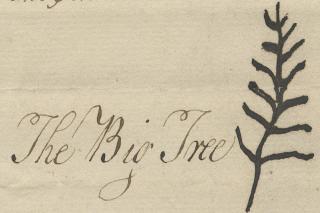 The Big Tree